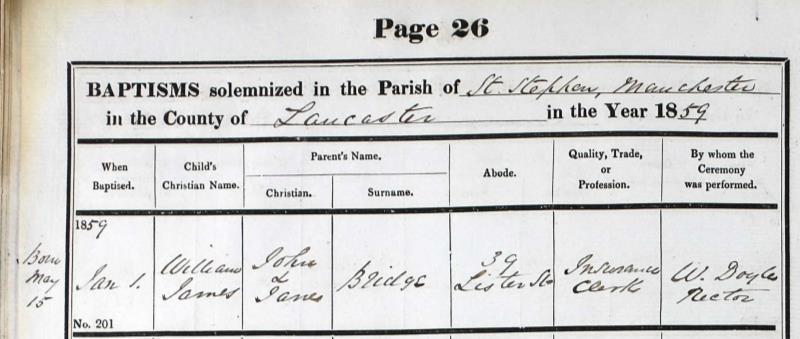 Page 26
BAPTISMS solemnized in the Parish of St. Stephen, Manchester
in the County of Lancaster in the Year 1859
When Baptised.
Child's Christian Name.
Parent's Name.
Christian.
Surname.
Abode.
Quality, Trade, or Profession.
By whom the Ceremony was performed.
1859
Born May 15
Jan 1.
William James
John & Jane
Bridge
39 Lister St
Insurance Clerk
W. Doyle Rector
No. 201